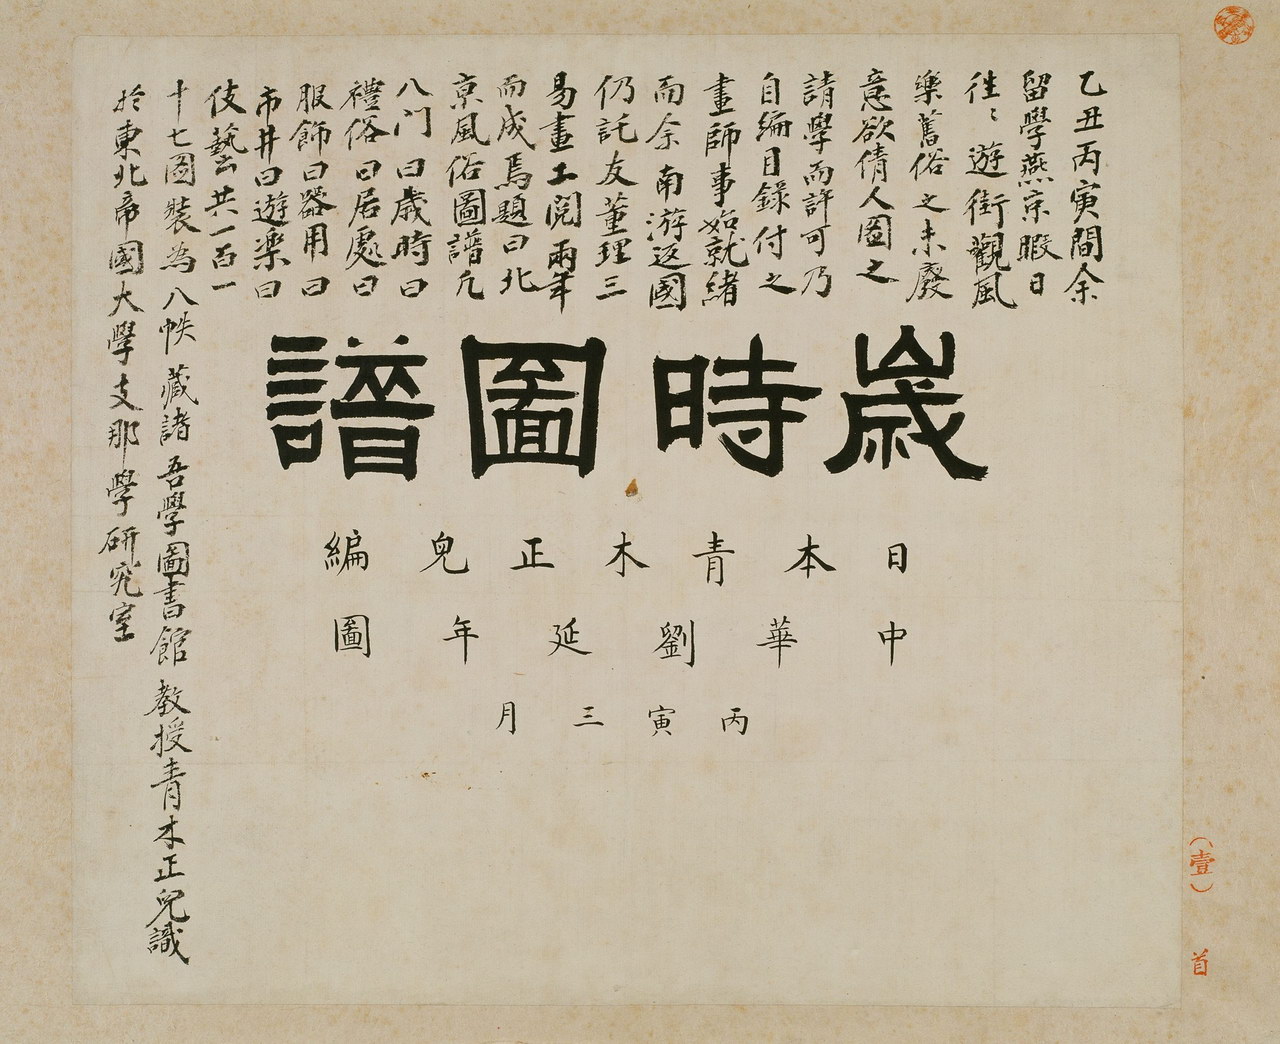 乙丑丙寅間余
留學燕京暇日
徃〻遊街觀風
樂舊俗之未廢
意欲倩人圖之
請學而許可乃
自編目錄付之
畫師事始就緒
而余南游返國
仍託友董理三
易畫工閱兩年
而成焉題曰北
京風俗圖譜凡
八門曰歲時曰
禮俗曰居處曰
服飾曰器用曰
市井曰遊樂曰
伎藝共一百一
十七圖裝為八帙藏諸吾學圖書館教授青木正兒識
於東北帝國大學支那學研究室
歲時圖譜
日本青木正兒編
中華劉延年圖
丙寅三月
（壹）首